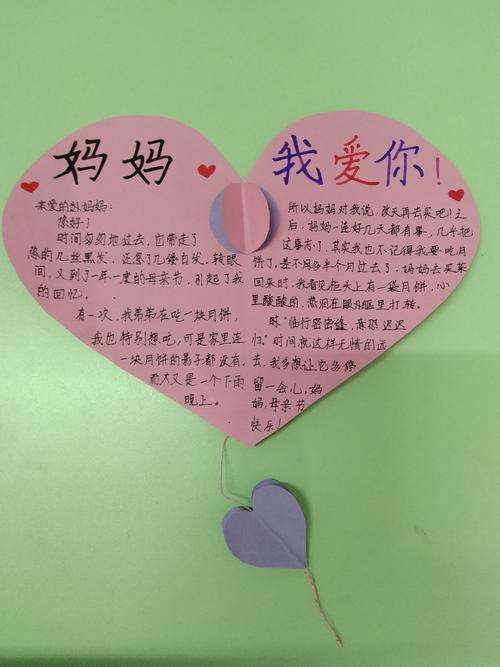 妈妈
亲爱的妈妈:
您好!
时间匆匆地过去,它带走了
您的几丝黑发,还答了几缕白发。转眼
间,又到了一年一度的母亲节,引起了我
的回忆。
有一次,我弟弟在吃一块月饼,
我也特别想吃,可是家里连
一块月饼的影子都没有。
而天又是一个下雨
晚上。
我爱你!
所以妈妈对我说,改天再去买吧!之
后,妈妈一连好几天都有事,几乎把
这事忘了,其实我也不记得我要吃月
饼了。差不多多半个月过去了,妈妈去买菜
回来时,我看见柜头上有一袋月饼,心
里酸酸的,热泪在眼眶里打转。
咏“临行密密缝,意恐迟迟
归。”时间就这样无情的逝
去,我多想让它多停
留一会儿,妈
妈,母亲节
快乐!